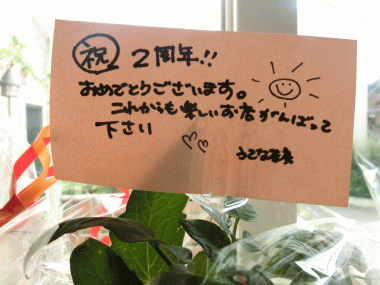 祝 2周年!!
おめでとうございます。
これからも楽しいお店がんばって
下さい